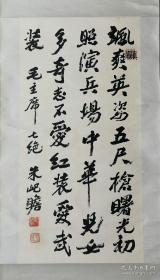 飒爽英姿五尺槍曙光初
照演兵場中华兒女
多奇志不愛红装愛武
装 毛主席七绝 朱屺瞻